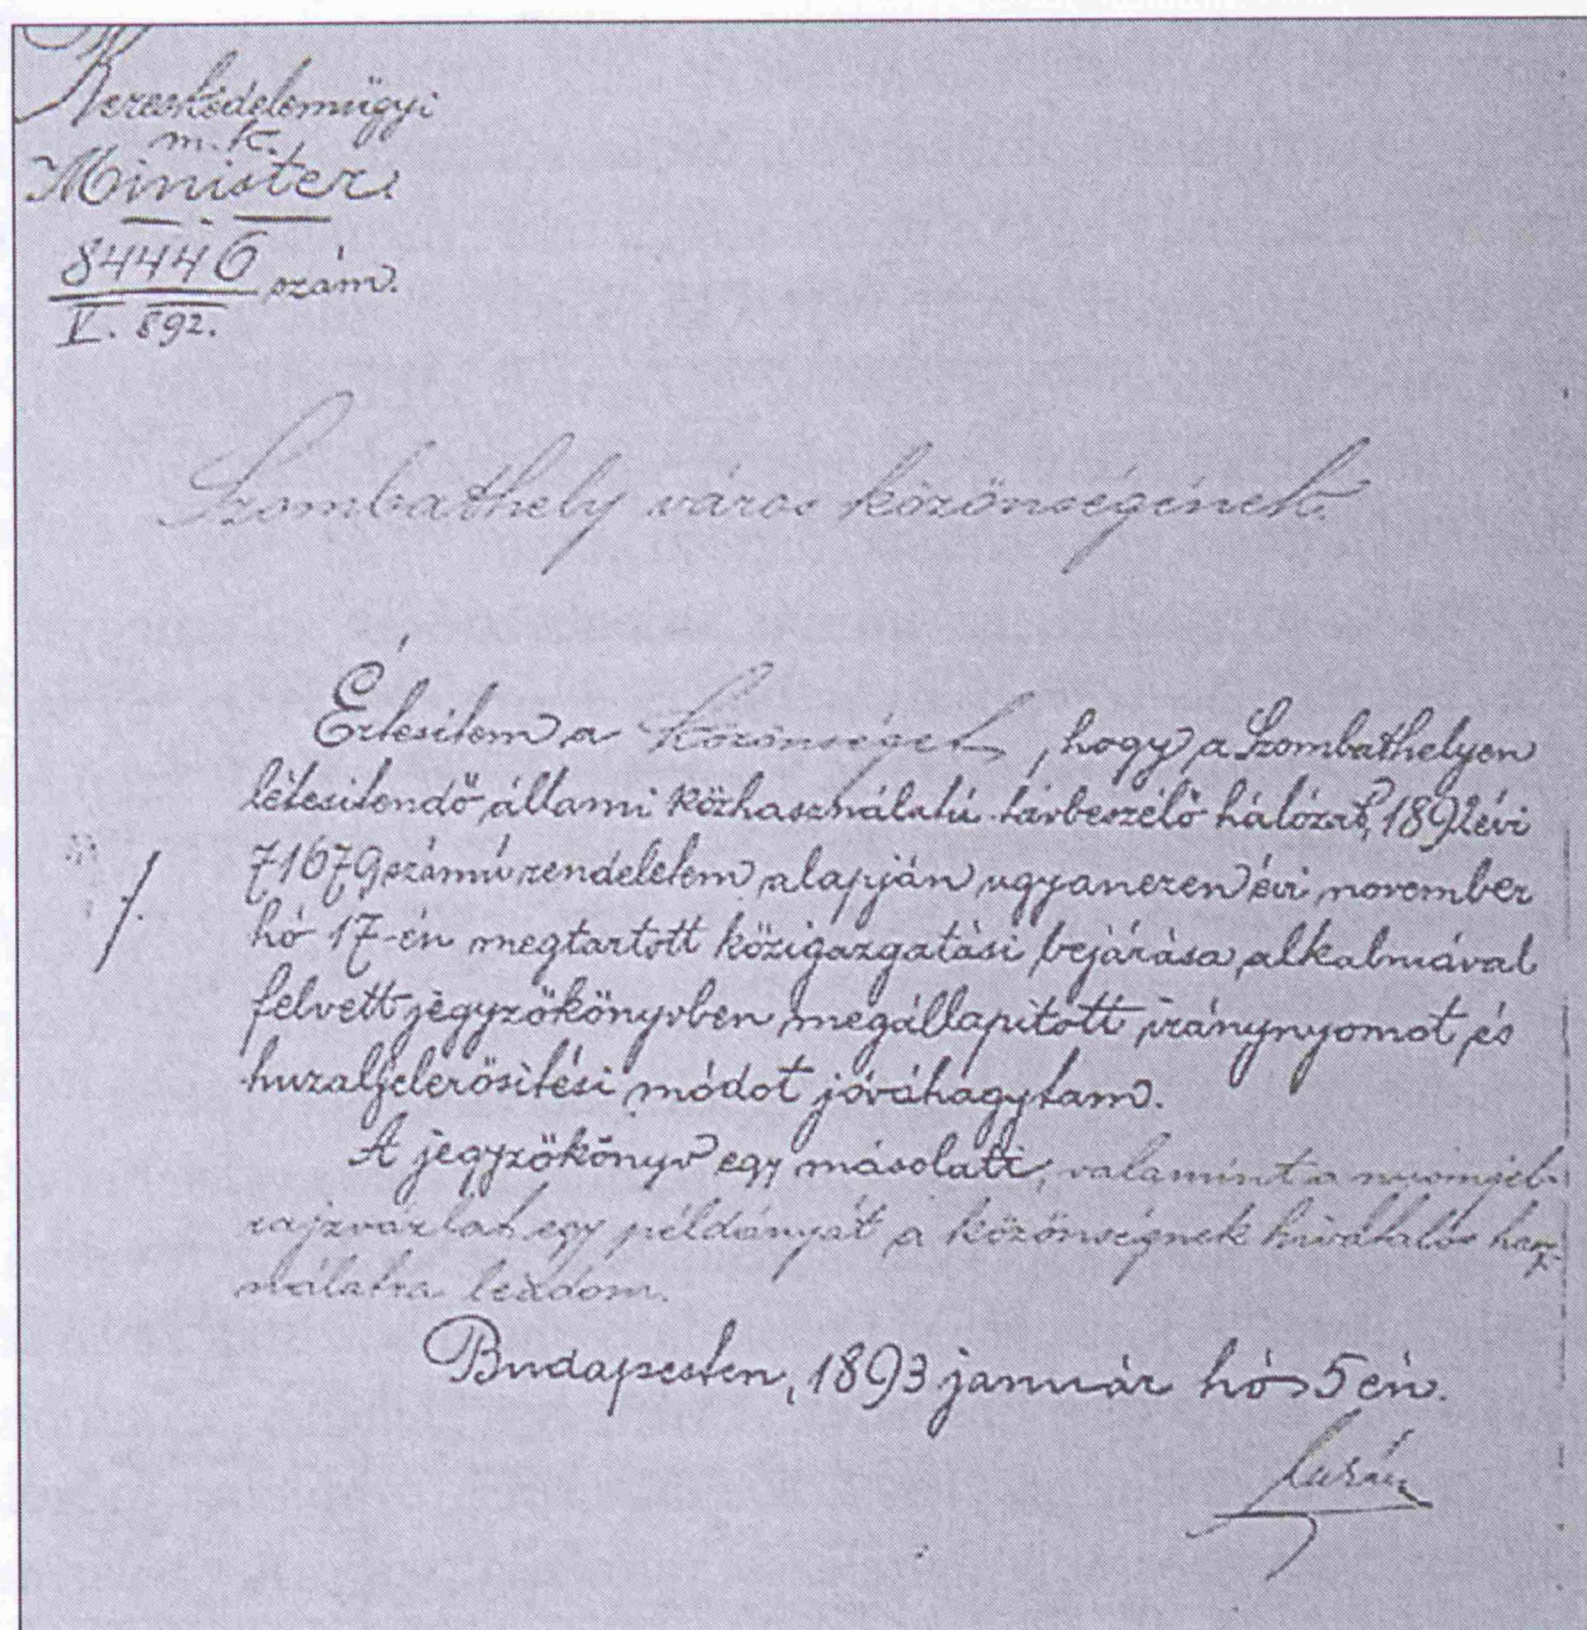 Kereskedelemügyi
m. k.
Minister.
84446 szám.
V. 892.
Szombathely város közönségének.
Értesitem a közönséget, hogy a Szombathelyen
létesitendő állami közhasználatú távbeszélő hálózat, 1892 évi
71679 számú rendeletem alapján ugyanezen évi november
hó 17-én megtartott közigazgatási bejárása alkalmával
felvett jegyzőkönyvben megállapitott iránynyomot és
huzalfelerősitési módot jóváhagytam.
A jegyzőkönyv egy másolati, valamint a nyomjel-
rajzvázlat egy példányát a közönségnek hivatalos hasz-
nálatra leadom.
Budapesten, 1893 január hó 5 én.